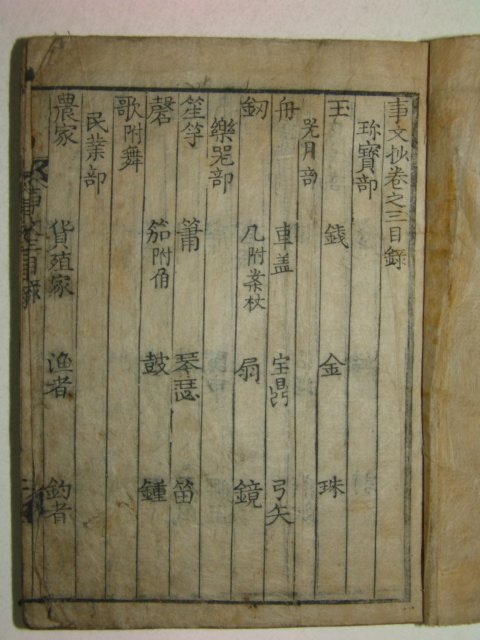 事文抄卷之三目録
珎寶部
玉 錢 金 珠
光月部
舟 車盖 宝鼎 弓矢
釰 几附案杖 扇 鏡
樂器部
笙竽 簫 琴瑟 笛
磬 笳附角 鼓 鍾
歌附舞
民業部
農家 貨殖家 漁者 釣者